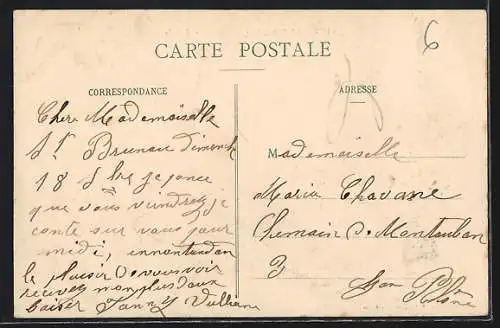 6
CARTE POSTALE
CORRESPONDANCE
ADRESSE
Chere Mademoiselle
St Brunau Dimench
18
que vous viendrez je
conte sur vous pour
midi, innantandan
le plaisir de vous voir
recevez mon plus doux
baiser Fanny Vullian
Mademoiselle
Maria Chavane
Chemain de Montauban
3
Lyon Rhône